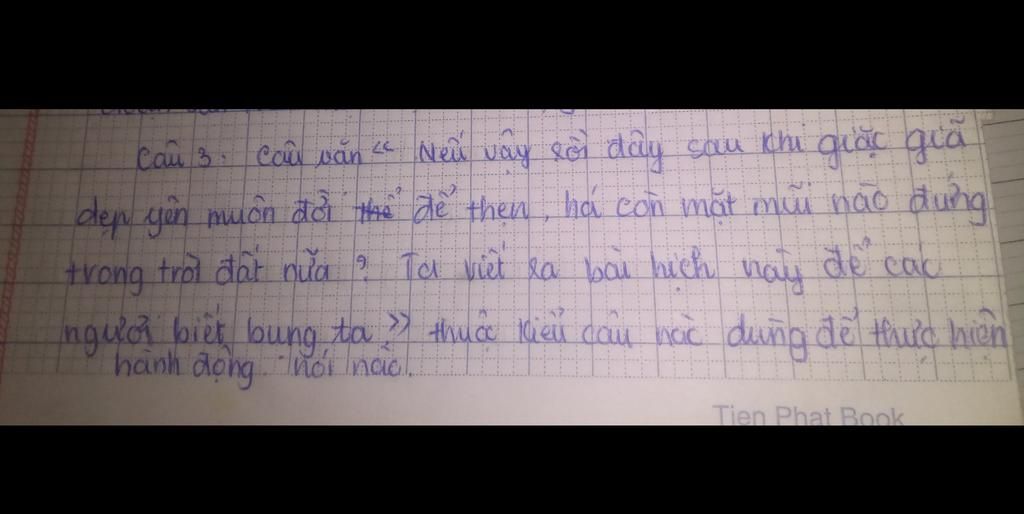 Câu 3: Câu văn « Nếu vậy rồi dây sau khi giặc giã
dẹp yên muôn đời để thẹn, há còn mặt mũi nào đứng
trong trời đất nữa? Ta viết ra bài hịch này để các
người biết bụng ta » thuộc kiểu câu nào dùng để thực hiện
hành động nói nào.
Tien Phat Book